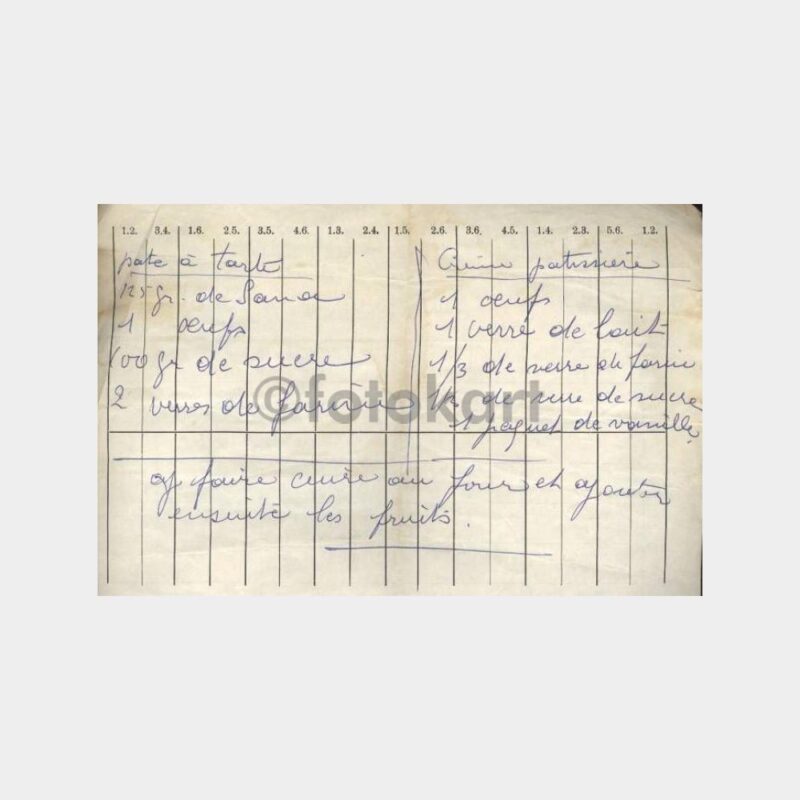 1.2. 3.4. 1.6. 2.5. 3.5. 4.6. 1.3. 2.4. 1.5. 2.6. 3.6. 4.5. 1.4. 2.3. 5.6. 1.2.
pate à tarte
125 gr. de Sana
1 oeufs
100 gr de sucre
2 verres de farine
Crème patissière
1 oeufs
1 verre de lait
1/3 de verre de farine
1/2 de verre de sucre
1 paquet de vanille
faire cuire au four et ajouter
ensuite les fruits.
©fotokart